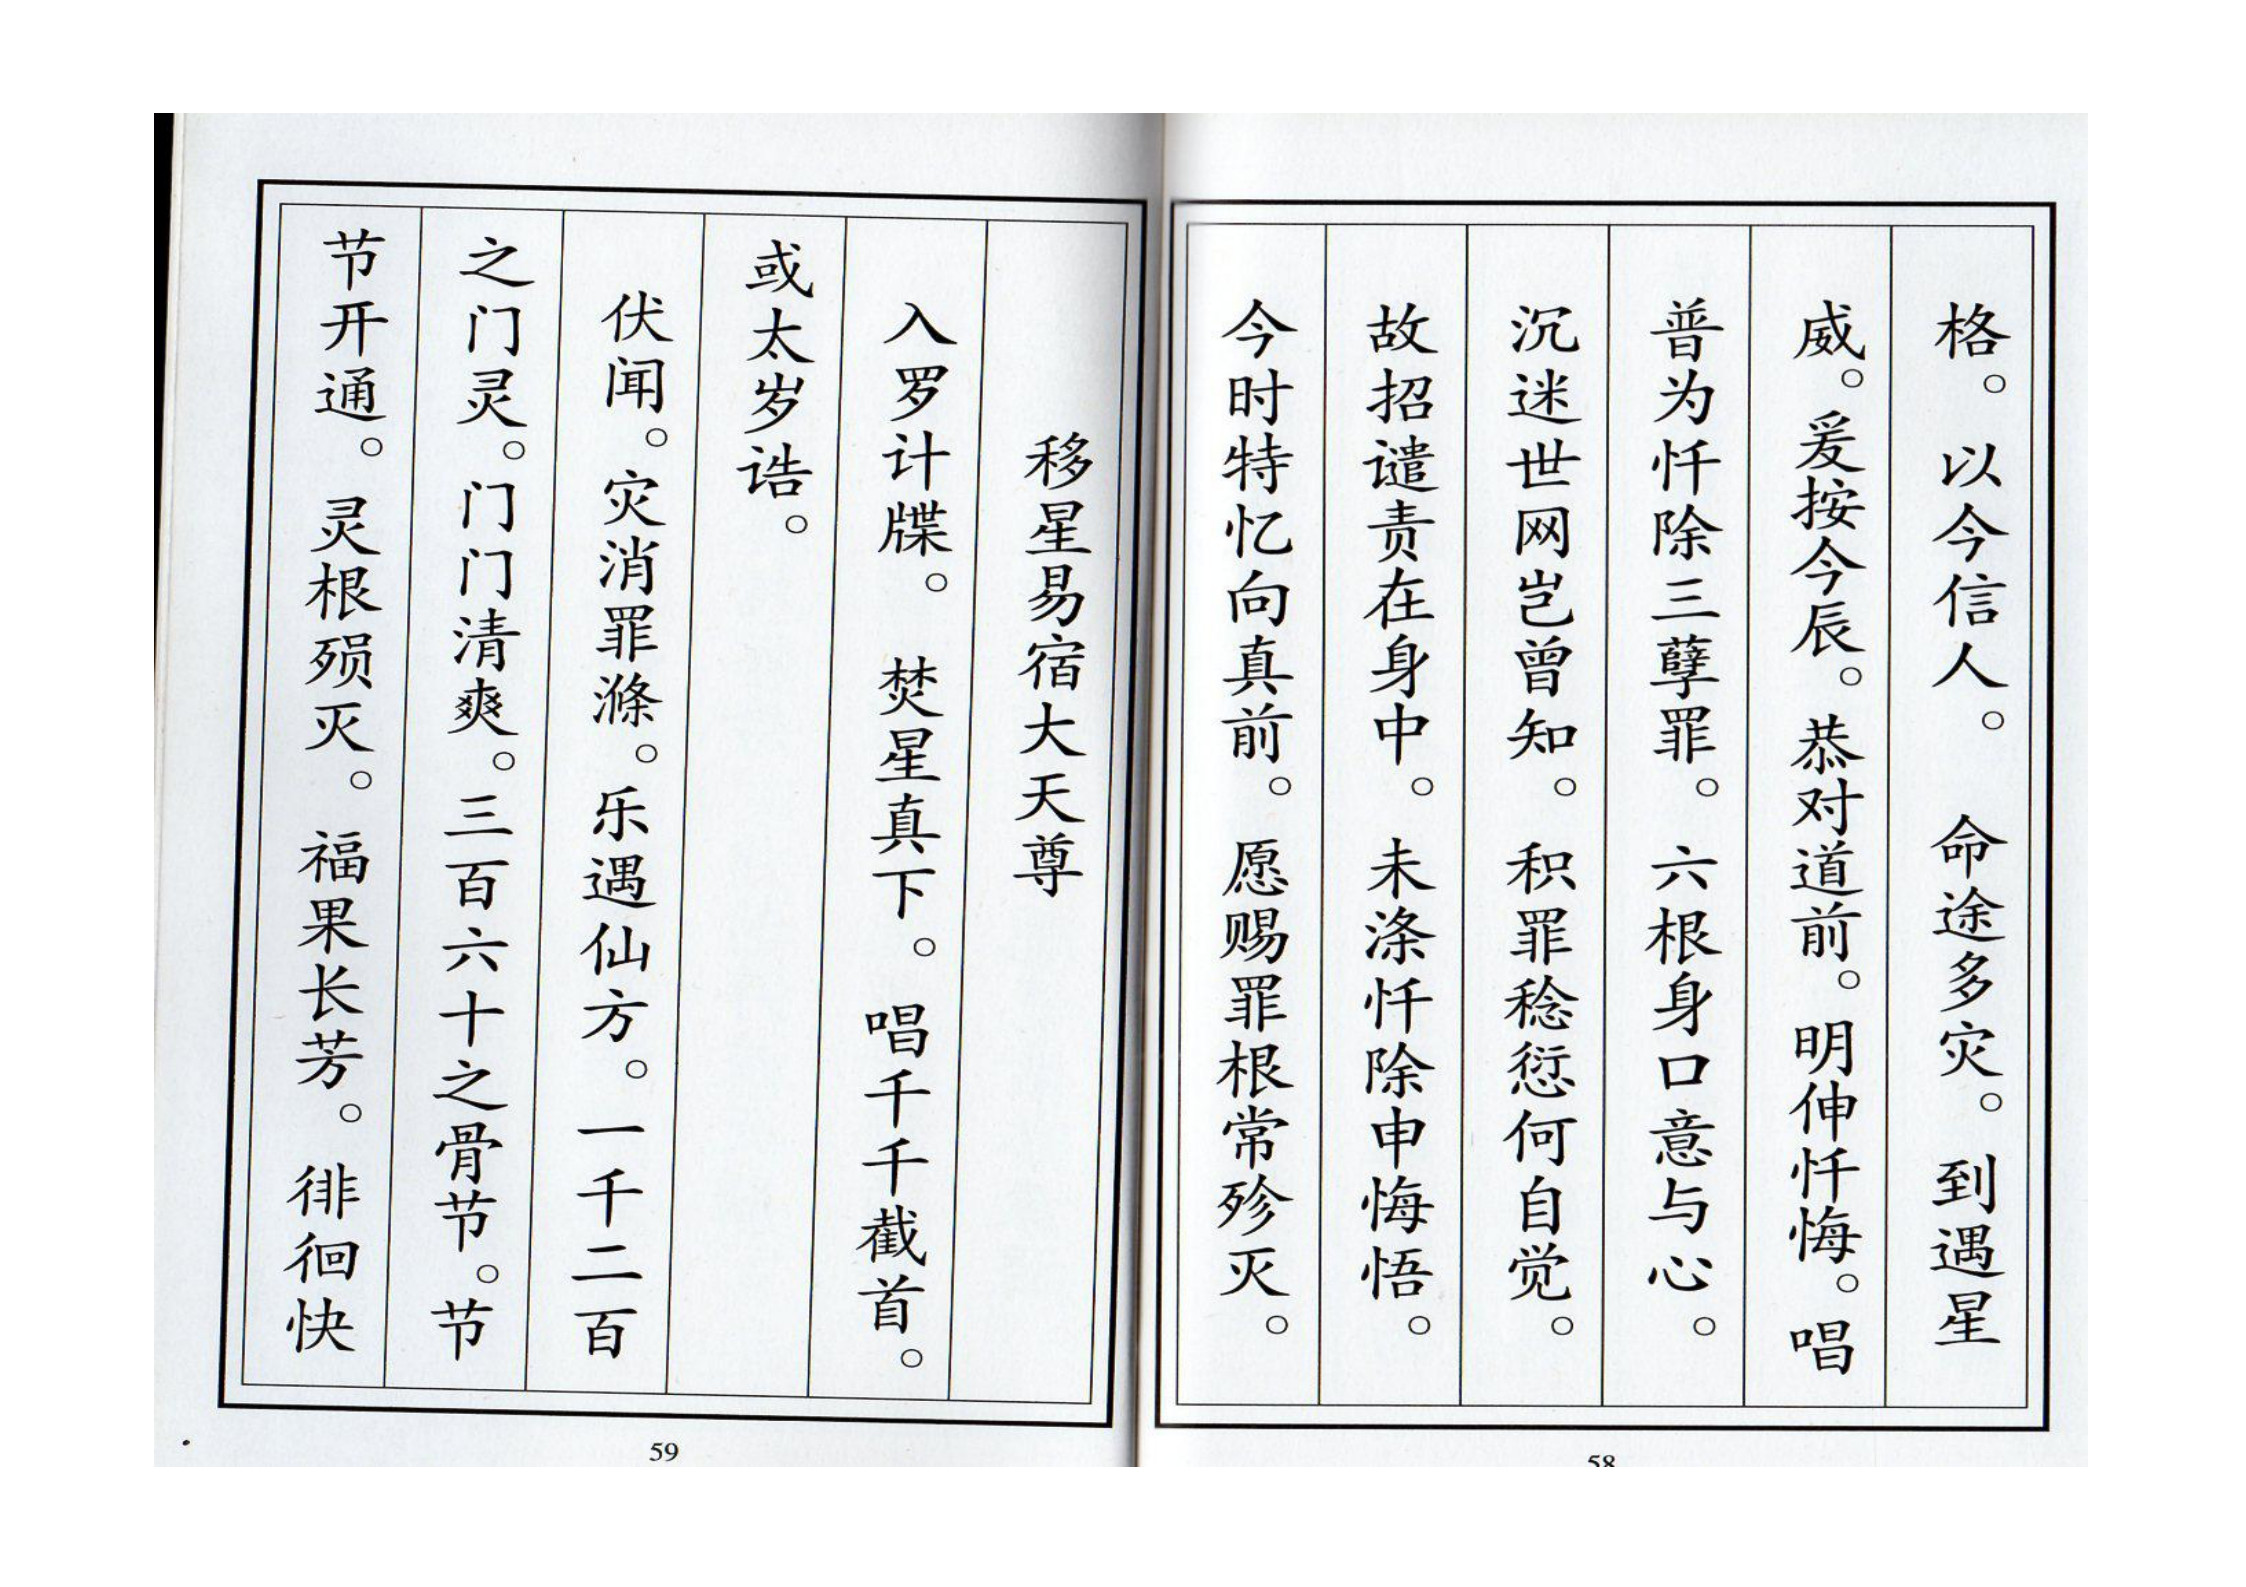 格。以今信人。命途多灾。到遇星
威。爰按今辰。恭对道前。明伸忏悔。唱
普为忏除三孽罪。六根身口意与心。
沉迷世网岂曾知。积罪稔愆何自觉。
故招谴责在身中。未涤忏除申悔悟。
今时特忆向真前。愿赐罪根常殄灭。
58
移星易宿大天尊
入罗计牒。焚星真下。唱千千截首。
或太岁诰。
伏闻。灾消罪滌。乐遇仙方。一千二百
之门灵。门门清爽。三百六十之骨节。节
节开通。灵根殒灭。福果长芳。徘徊快
59